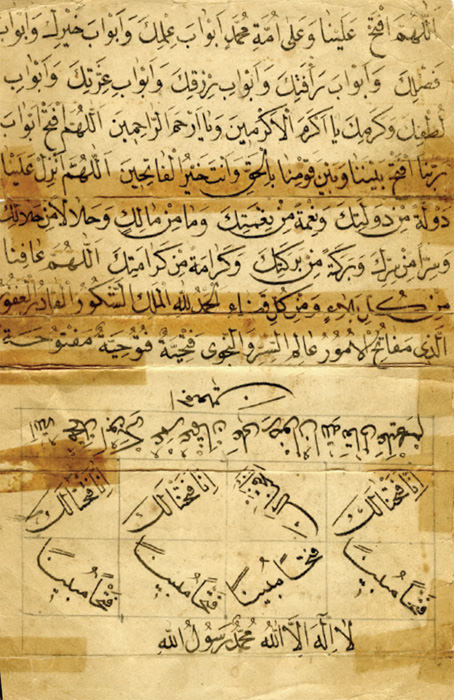 اَللّٰهُمَّ افْتَحْ عَلَيْنَا وَعَلٰى اُمَّةِ مُحَمَّدٍ اَبْوَابَ عِلْمِكَ وَاَبْوَابَ خَيْرِكَ وَاَبْوَابَ
فَضْلِكَ وَاَبْوَابَ رَأْفَتِكَ وَاَبْوَابَ رِزْقِكَ وَاَبْوَابَ عِزَّتِكَ وَاَبْوَابَ
لُطْفِكَ وَكَرَمِكَ يَا اَكْرَمَ الْاَكْرَمِينَ وَيَا اَرْحَمَ الرَّاحِمِينَ اَللّٰهُمَّ افْتَحْ اَبْوَابَ
رَبَّنَا افْتَحْ بَيْنَنَا وَبَيْنَ قَوْمِنَا بِالْحَقِّ وَاَنْتَ خَيْرُ الْفَاتِحِينَ اَللّٰهُمَّ اَنْزِلْ عَلَيْنَا
دَوْلَةً مِنْ دَوْلَتِكَ وَنِعْمَةً مِنْ نِعْمَتِكَ وَمَا مِنْ مَالِكَ وَحَلَالًا مِنْ حَلَالِكَ
وَسِرًّا مِنْ سِرِّكَ وَبَرَكَةً مِنْ بَرَكَتِكَ وَكَرَامَةً مِنْ كَرَامَتِكَ اَللّٰهُمَّ عَافِنَا
مِنْ كُلِّ وَمِنْ كُلِّ قَضَاءٍ اَلْحَمْدُ لِلّٰهِ الْمَلِكِ الشَّكُورِ الْقَادِرِ
اَلَّذِي مَفَاتِحُ الْاُمُورِ عَالِمِ السِّرِّ وَالنَّجْوٰى فَتْحِيَّةً فُتُوحِيَّةً مَفْتُوحَةً
اِنَّا فَتَحْنَا لَكَ اِنَّا فَتَحْنَا لَكَ اِنَّا فَتَحْنَا لَكَ
فَتْحًا مُبِينًا فَتْحًا مُبِينًا فَتْحًا مُبِينًا فَتْحًا مُبِينًا
لَا اِلٰهَ اِلَّا اللّٰهُ مُحَمَّدٌ رَسُولُ اللّٰهِ